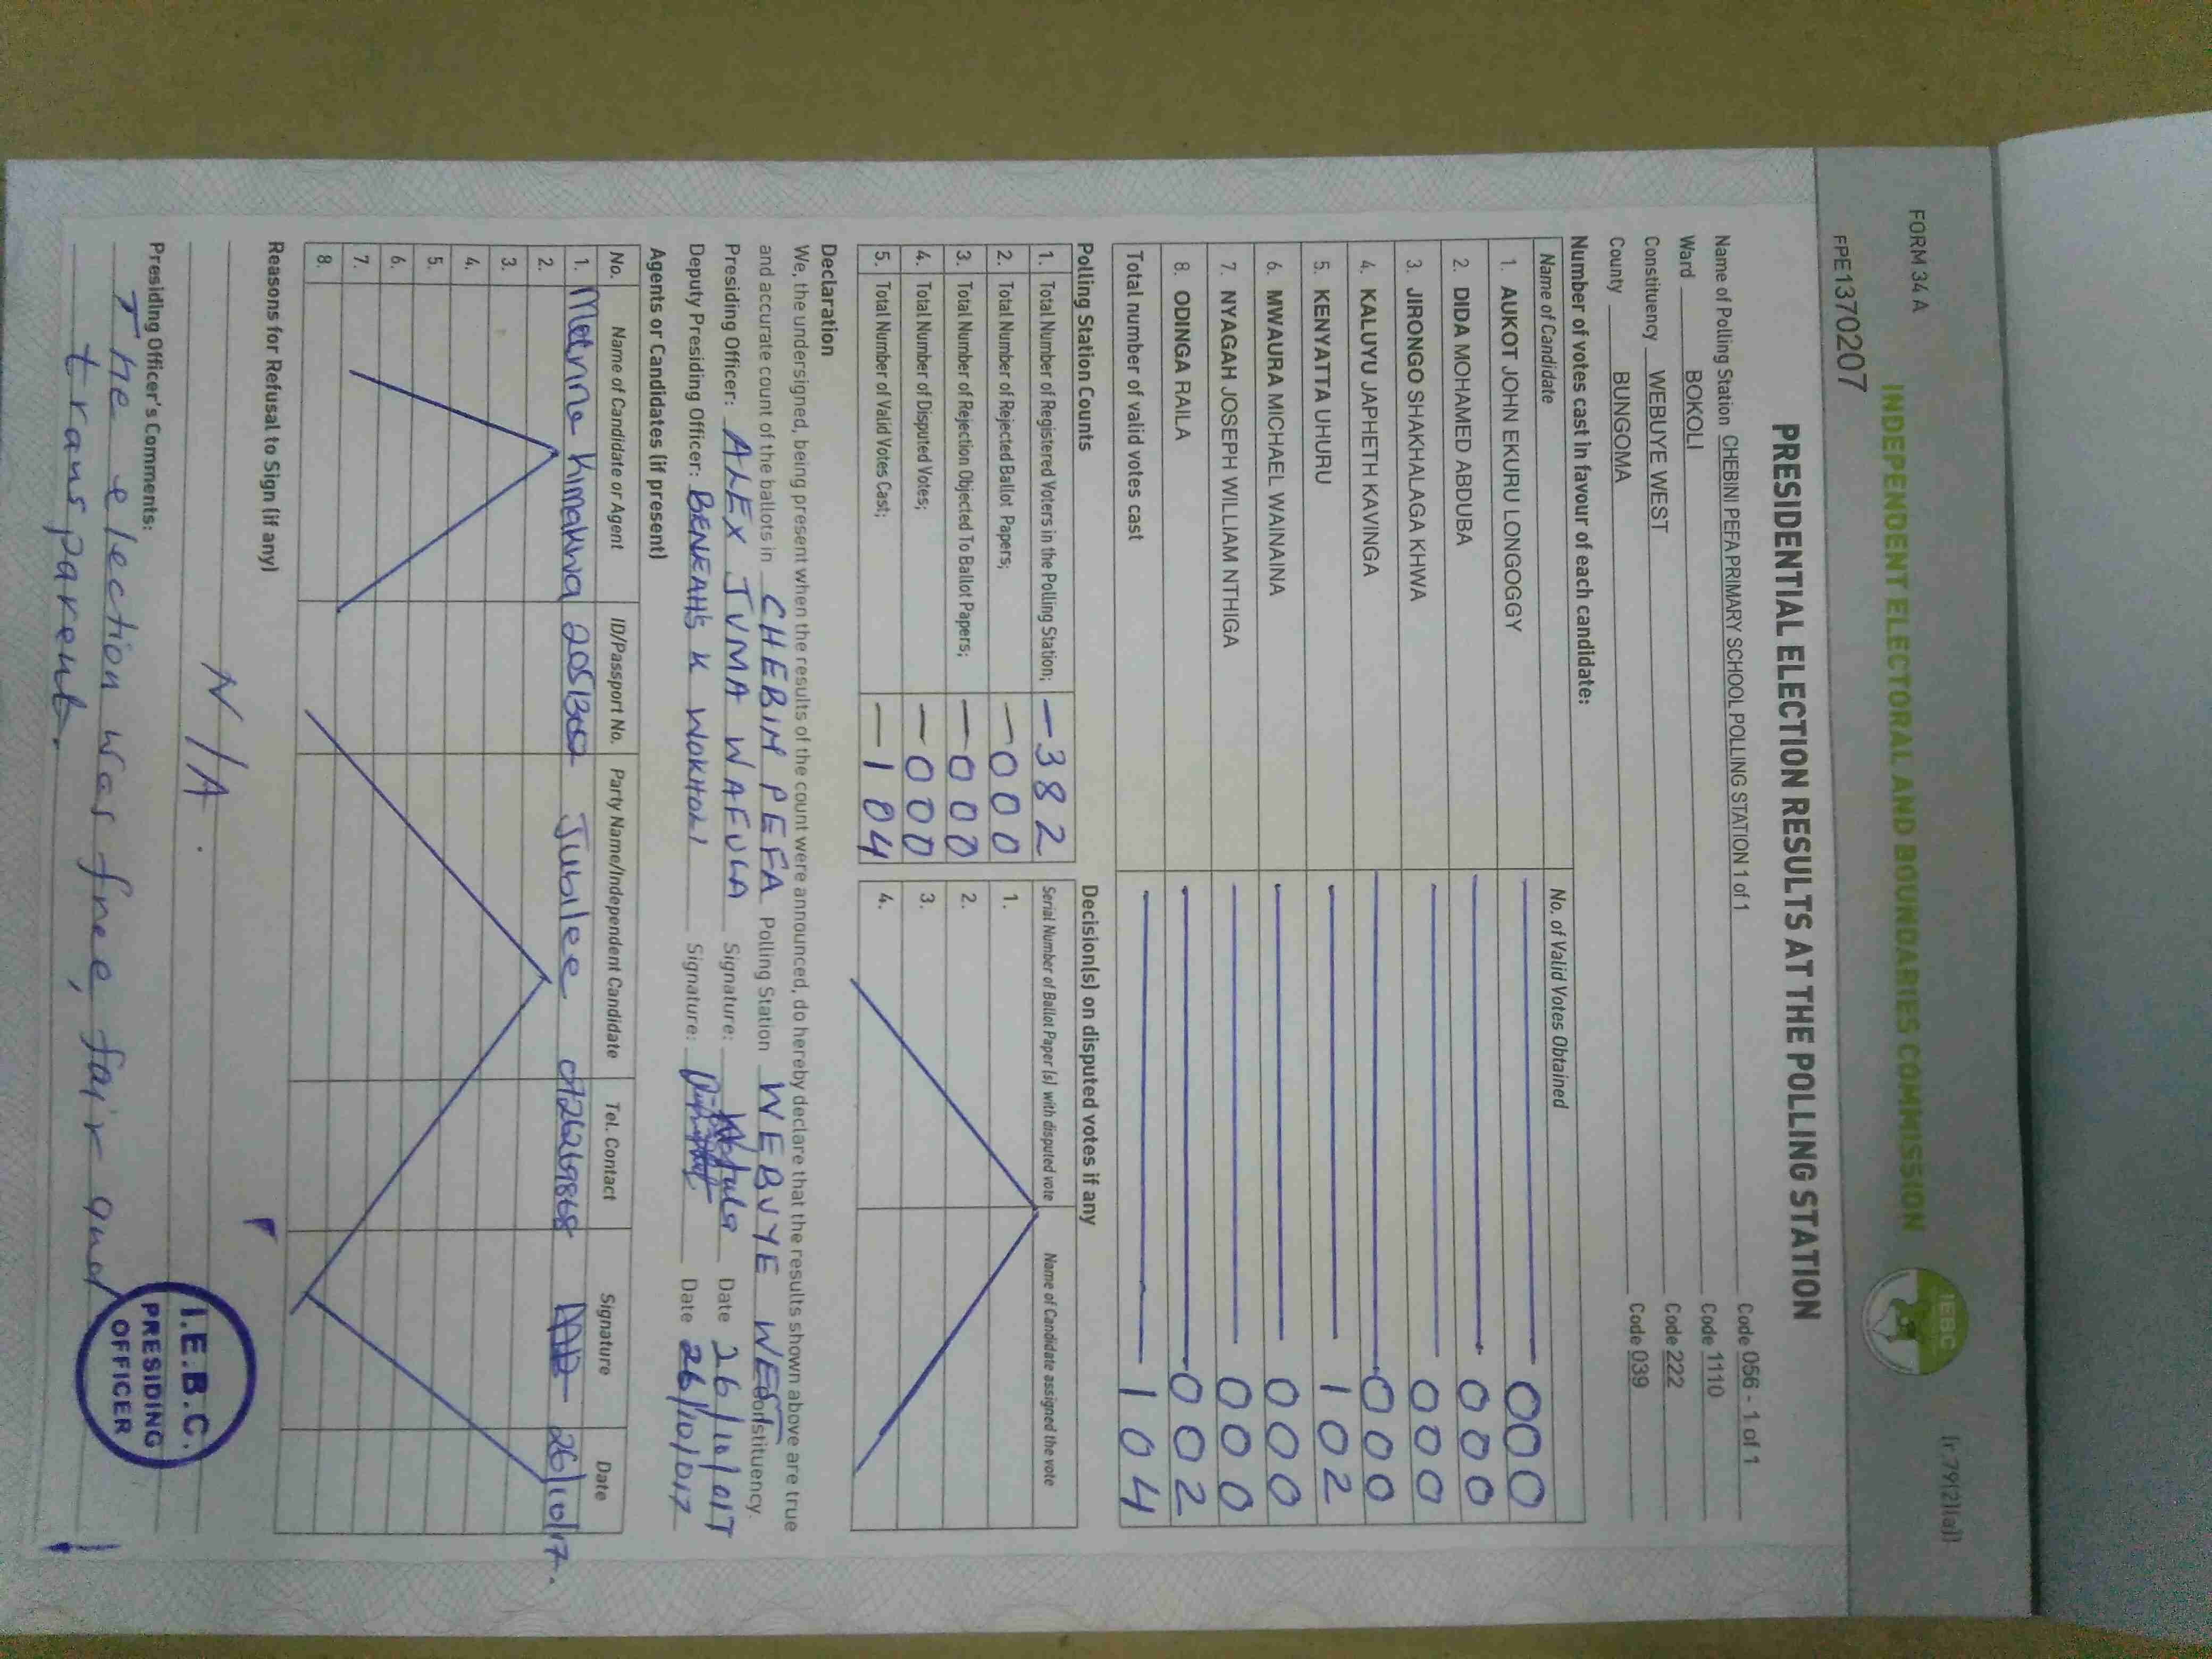 FORM 34 A
[r 79(2)(a)]
INDEPENDENT ELECTORAL AND BOUNDARIES COMMISSION
IEBC
FPE1370207
PRESIDENTIAL ELECTION RESULTS AT THE POLLING STATION
Name of Polling Station CHEBINI PEFA PRIMARY SCHOOL POLLING STATION 1 of 1 Code 056 - 1 of 1
Ward BOKOLI Code 1110
Constituency WEBUYE WEST Code 222
County BUNGOMA Code 039
Number of votes cast in favour of each candidate:
Name of Candidate No. of Valid Votes Obtained
1. AUKOT JOHN EKURU LONGOGGY 000
2. DIDA MOHAMED ABDUBA 000
3. JIRONGO SHAKHALAGA KHWA 000
4. KALUYU JAPHETH KAVINGA 000
5. KENYATTA UHURU 102
6. MWAURA MICHAEL WAINAINA 000
7. NYAGAH JOSEPH WILLIAM NTHIGA 000
8. ODINGA RAILA 002
Total number of valid votes cast 104
Polling Station Counts
1. Total Number of Registered Voters in the Polling Station; – 382
2. Total Number of Rejected Ballot Papers; – 000
3. Total Number of Rejection Objected To Ballot Papers; – 000
4. Total Number of Disputed Votes; – 000
5. Total Number of Valid Votes Cast; – 104
Decision(s) on disputed votes if any
Serial Number of Ballot Paper (s) with disputed vote Name of Candidate assigned the vote
1.
2.
3.
4.
Declaration
We, the undersigned, being present when the results of the count were announced, do hereby declare that the results shown above are true
and accurate count of the ballots in CHEBINI PEFA Polling Station WEBUYE WEST Constituency.
Presiding Officer: ALEX JUMA WAFULA Signature: Wafula Date 26/10/017
Deputy Presiding Officer: K Signature: Date 26/10/017
Agents or Candidates (if present)
No. Name of Candidate or Agent ID/Passport No. Party Name/Independent Candidate Tel. Contact Signature Date
1. Kimakwa Jubilee 26/10/17.
2.
3.
4.
5.
6.
7.
8.
Reasons for Refusal to Sign (if any)
N/A.
Presiding Officer's Comments:
The election was free, fair and
transparent.
I.E.B.C.
PRESIDING
OFFICER